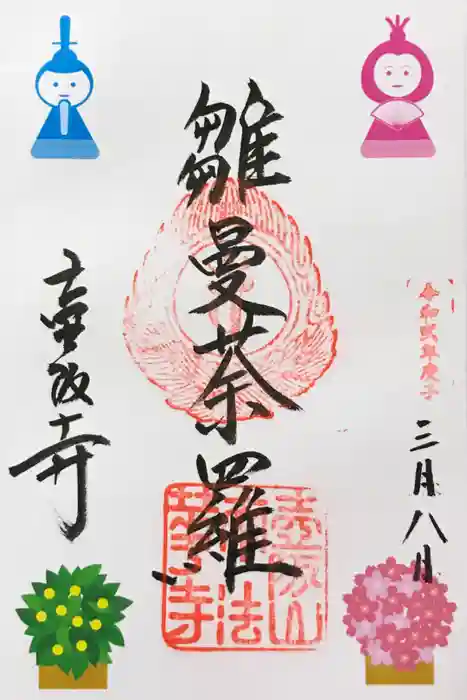 令和弐年庚子
三月八日
雛曼荼羅
壷阪山
南法
華寺
壷阪寺